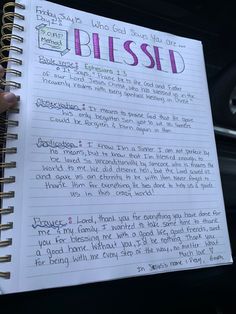 Friday, July 15 Who God Says You are...
Day 2
S.O.A.P
Method
BLESSED
Bible verse: Ephesians 1:3
"It Says," Praise be to the God and Father
of our Lord Jesus Christ, who has blessed us in the
heavenly realms with every spiritual blessing in Christ."
Observation: It means to praise God that He gave
his only begotten son, just so we as sinners
could be forgiven & born again in him.
Application: I know I'm a Sinner & I'm not perfect by
no means, but to know that I'm blessed enough to
be loved so unconditionally by someone who is
world to me. We did deserve Him, but the Lord saved us
and gave us an eternity to be with him. Never forget to
thank Him for everything He has done to help us & guide
us in this crazy world!
Prayer: Lord, thank you for everything you have done for
me & my family. I wanted to take some time to thank
you for blessing me with a good life, good friends, and
a good home. Without you, I'd be nothing. Thank you
for being with me every step of the way, no matter what.
Much love
In Jesus's name I Pray, Amen.